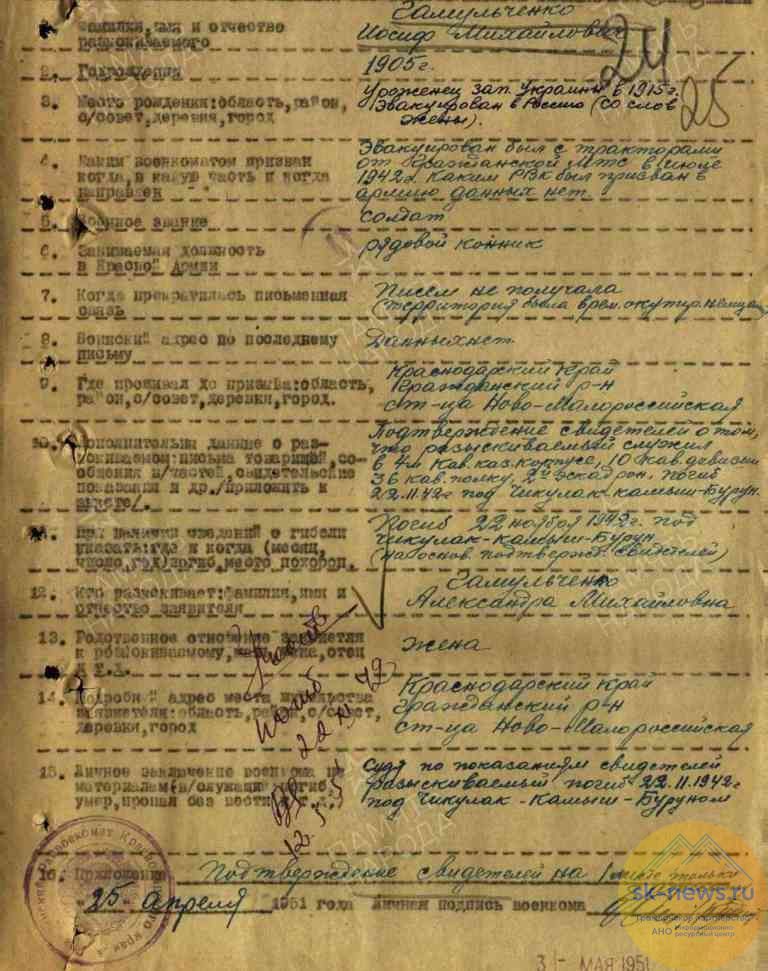 Гамульченко
1. Фамилия, имя и отчество Иосиф Михайлович
разыскиваемого
24
25
2. Год рождения 1905 г.
3. Место рождения: область, район, Уроженец зап. Украины в 1915 г.
с/совет, деревня, город эвакуирован в Россию (со слов
жены).
Эвакуирован был с тракторами
4. Каким военкоматом призван от Гражданской МТС в июле
когда, в какую часть и когда 1942 г. Каким РВК был призван в
направлен армию данных нет.
5. Военное звание солдат
6. Занимаемая должность рядовой конник
в Красной Армии
7. Когда прекратилась письменная Писем не получала
связь (территория была врем. оккупир. немцам
8. Воинский адрес по последнему Данных нет.
письму
Краснодарский край
9. Где проживал до призыва: область, Гражданский р-н
район, с/совет, деревня, город. ст-ца Ново-Малороссийская
Подтверждение свидетелей о том,
10. Дополнительные данные о раз- что разыскиваемый служил
ыскиваемом: письма товарищей, со- в 4м Кав. каз. корпусе, 10 кав. дивизии
общения в/частей, свидетельские 36 кав. полку, 2й эскадрон, погиб
показания и др. /приложить к 22.11.42 г под Чикулак-Камыш-Бурун.
анкете/.
11. При наличии сведений о гибели Погиб 22 ноября 1942 г. под
указать: где и когда (месяц, Чикулак-Камыш-Бурун
число, год) погиб, место похорон. (на основ. подтвержд. свидетелей)
Гамульченко
12. Кто разыскивает: фамилия, имя и Александра Михайловна
отчество заявителя
13. Родственное отношение заявителя жена
к разыскиваемому, отец
и т.д.
Краснодарский край
14. Подробный адрес места жительства Гражданский р-н
заявителя: область, район, с/совет, ст-ца Ново-Малороссийская
деревня, город
погиб
22 XI 42
12.5.51
15. Личное заключение военкома по Судя по показаниям свидетелей
материалам (в/служащий погиб, разыскиваемый погиб 22.11.1942 г
умер, пропал без вести и т.д.) под Чикулак-Камыш-Буруном
16. Приложение Подтверждение свидетелей на 1 листе только
"25" апреля 1951 года Личная подпись военкома
3 - МАЯ 1951
ПАМЯТЬ НАРОДА
sk-news.ru
Гражданское партнерство
АНО информационно
ресурсный центр